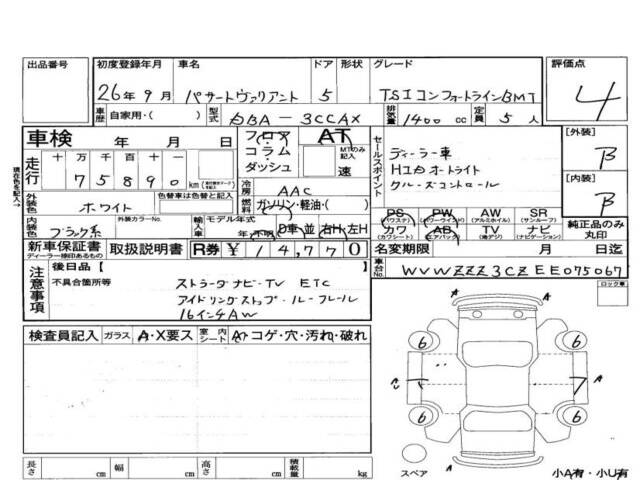 出品番号 初度登録年月 車名 ドア 形状 グレード 評価点
26年9月 パサートヴァリアント 5 TSIコンフォートラインBMT 4
車歴 自家用・( ) 型式 DBA-3CCAX 排気量 1400 cc 定員 5人
車検 年 月 日 フロア コラム・ダッシュ AT MTのみ記入 速
走行 十 万 千 百 十 一
75890 km
セールスポイント ディーラー車
HIDオートライト
クルーズコントロール
[外装] B
[内装] B
外装色 色替車は色替と記入 ホワイト
冷房 AAC
燃料 ガソリン・軽油・( )
内装色 ブラック系 外装カラーNo. 輸入車 モデル年式 年・不明 D車 並 右H・左H
PS (パワステ) PW (パワーウインド) AW (アルミホイル) SR (サンルーフ)
カワ (カワシート) AB (エアバッグ) TV (地デジ) ナビ (ナビゲーション)
純正品のみ丸印
新車保証書 ディーラー捺印あるもの 取扱説明書 R券 ¥14,770 名変期限 月 日迄
車台No. WVWZZZ3CZEE075067
注意事項 後日品[ ]
不具合箇所等 ストラーダナビ・TV ETC
アイドリングストップ・ルーフレール
16インチAW
ロック車
検査員記入 ガラス A・X要ス 室内シート A・コゲ・穴・汚れ・破れ
A
6 6
A A
6 6
A A
スペア 小A有・小U有
長さ cm 幅 cm 高さ cm 積載量 kg